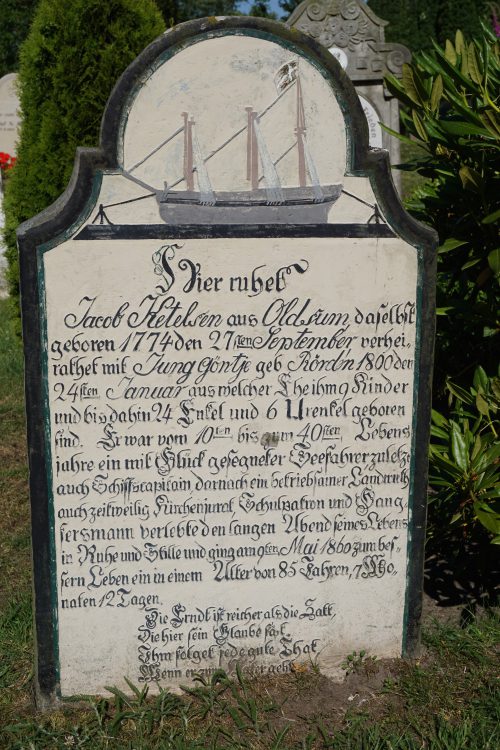 Hier ruhet
Jacob Ketelsen aus Oldsum daselbst
geboren 1774 den 27sten September verhei-
rathet mit Jung Göntje geb Rördn 1800 der
24sten Januar aus welcher Ehe ihm 9 Kinder
und bis dahin 24 Enkel und 6 Urenkel geboren
sind. Er war vom 10ten bis zum 40sten Lebens
jahre ein mit Glück gesegneter Seefahrer zuletzt
auch Schiffscapitain darnach ein betriebsamer Landwirth
auch zeitweilig Kirchenjurat, Schulpatron und Gang-
fersmann verlebte den langen Abend seines Lebens
in Ruhe und Stille und ging am 9ten Mai 1860 zum bes-
sern Leben ein in einem Alter von 85 Jahren, 7 Mo-
naten 12 Tagen.
Die Erndt ist reicher als die Saat,
Die hier sein Glaube sä't.
Ihm folget jede gute That
Wenn er zum geht